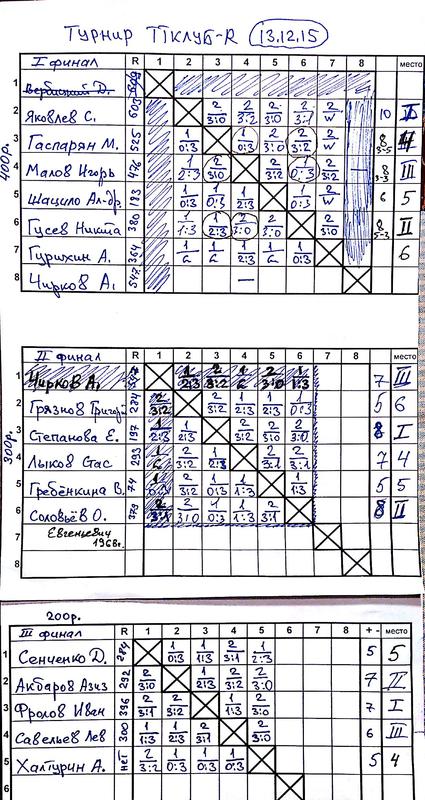 Турнир ТТклуб-R 13.12.15
400р.
I финал R 1 2 3 4 5 6 7 8 место
1 Вербицкий Д.
2 Яковлев С. 603 2 3:0 2 3:2 2 3:0 2 3:1 2 W 10 I
3 Гаспарян М. 525 1 0:3 1 0:3 2 3:0 2 3:2 2 W 8
4 Малов Игорь 476 1 2:3 2 3:0 2 3:2 1 0:3 2 3:2 8 III
5 Шацило Ал-др. 183 1 0:3 1 0:3 1 2:3 1 0:3 2 W 6 5
6 Гусев Никита 380 1 1:3 1 2:3 2 3:0 2 3:0 2 3:0 8 II
7 Гурихин А. 364 1 L 1 L 1 1 L 1 0:3 6
8 Чирков А. 547 —
300р.
II финал R 1 2 3 4 5 6 7 8 место
1 Чирков А. 547 1 2:3 2 3:2 1 L 2 3:0 1 1:3 7 III
2 Грязнов Григорий 224 2 3:2 2 3:2 1 2:3 1 2:3 1 0:3 5 6
3 Степанова Е. 197 1 2:3 1 2:3 2 3:2 2 3:0 2 3:0 8 I
4 Лыков Стас 293 1 L 2 3:2 1 2:3 2 3:1 2 3:1 7 4
5 Гребёнкина В. 74 1 0:3 2 3:2 1 0:3 1 1:3 1 1:3 5 5
6 Соловьёв О. 379 2 3:1 2 3:0 1 0:3 1 1:3 2 3:1 8 II
7 Евгеньевич
1968г.
8
200р.
III финал R 1 2 3 4 5 6 7 8 + - место
1 Сенченко Д. 284 1 0:3 1 1:3 2 3:1 1 2:3 5 5
2 Акбаров Азиз 292 2 3:0 1 2:3 2 3:2 2 3:0 7 II
3 Фролов Иван 336 2 3:1 2 3:2 1 1:3 2 3:0 7 I
4 Савельев Лев 300 1 1:3 1 2:3 2 3:1 2 3:0 6 III
5 Халтурин А. нет 2 3:2 1 0:3 1 0:3 1 0:3 5 4
6